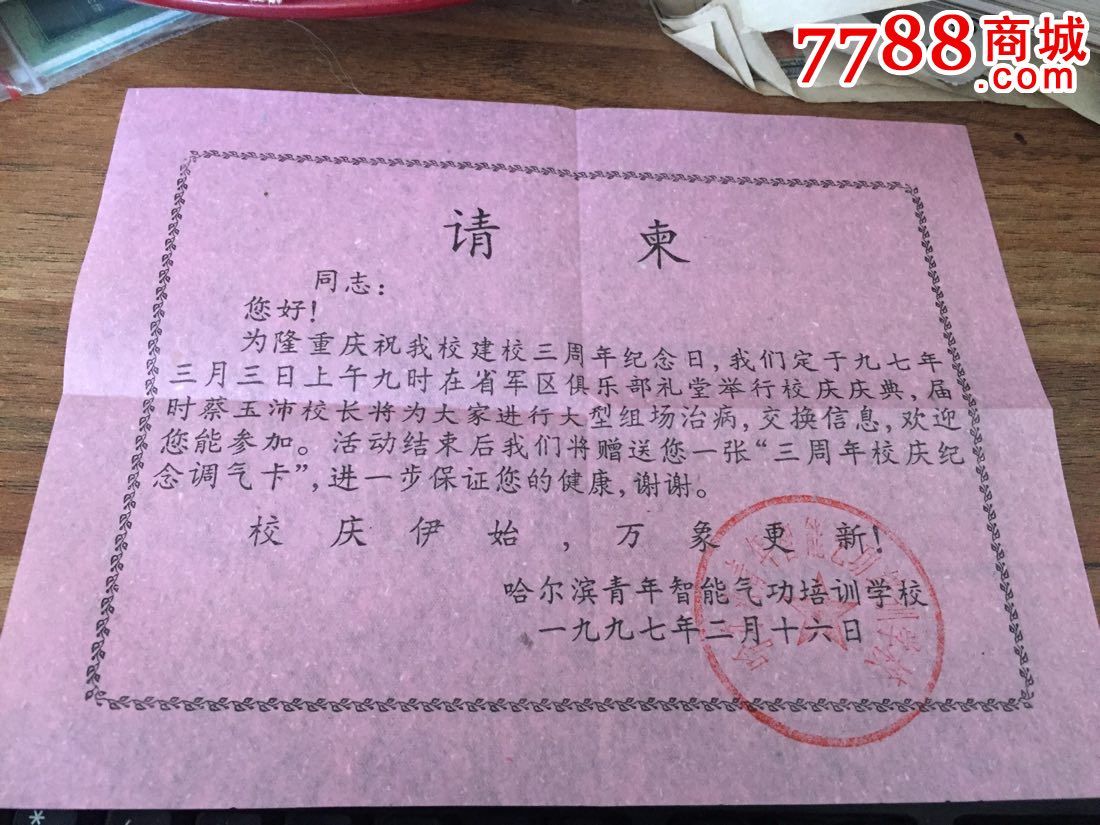 7788商城
.com
请柬
同志：
您好！
为隆重庆祝我校建校三周年纪念日，我们定于九七年
三月三日上午九时在省军区俱乐部礼堂举行校庆庆典，届
时蔡玉沛校长将为大家进行大型组场治病，交换信息，欢迎
您能参加。活动结束后我们将赠送您一张“三周年校庆纪
念调气卡”，进一步保证您的健康，谢谢。
校庆伊始，万象更新！
哈尔滨青年智能气功培训学校
一九九七年二月十六日
哈尔滨青年智能气功培训学校